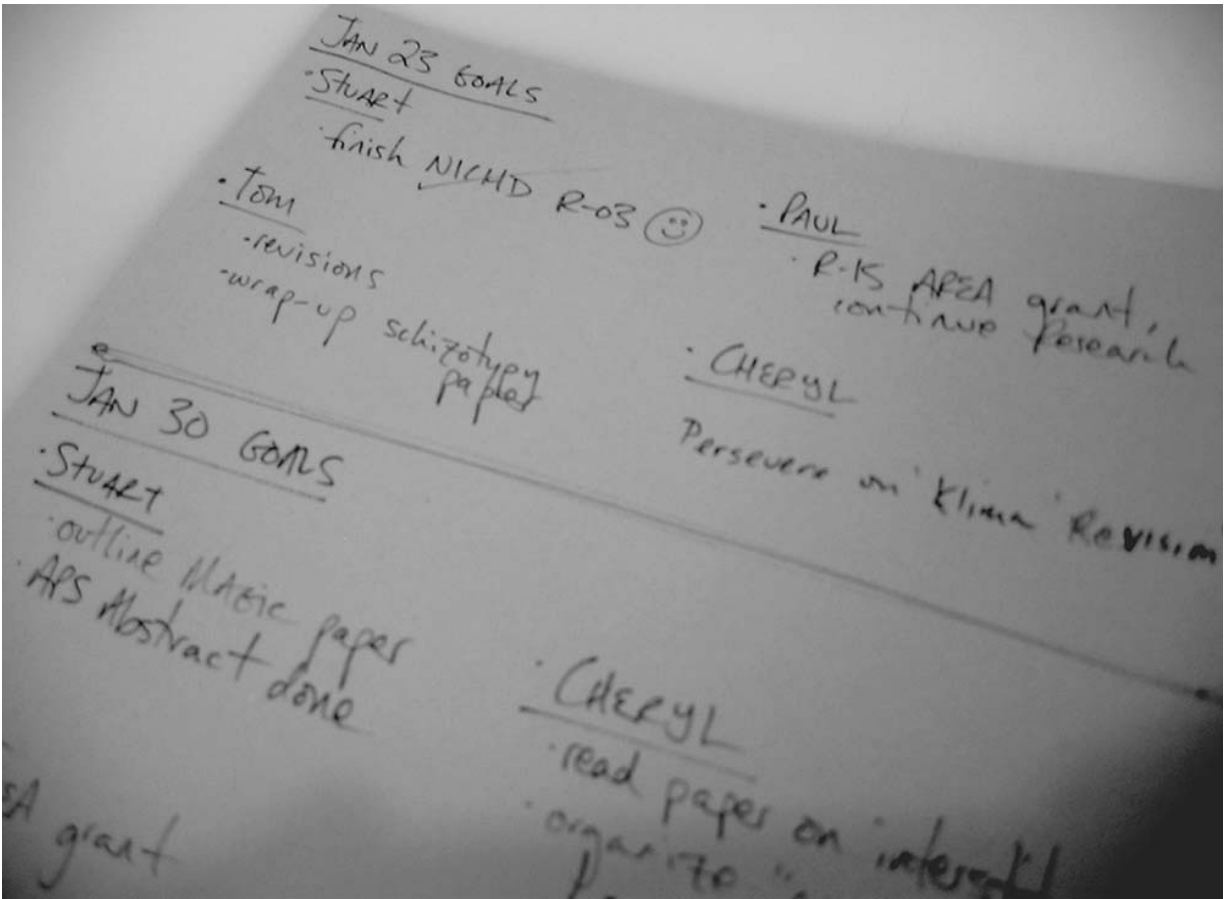 JAN 23 GOALS
· STUART
· finish NICHD R-03
· TOM
· revisions
· wrap-up schizotypy
paper
· PAUL
· R-15 AREA grant,
continue Research
· CHERYL
Persevere on 'Klima' Revision
JAN 30 GOALS
· STUART
· outline MAGIC paper
· APS Abstract done
grant
· CHERYL
· read paper on
· organize "